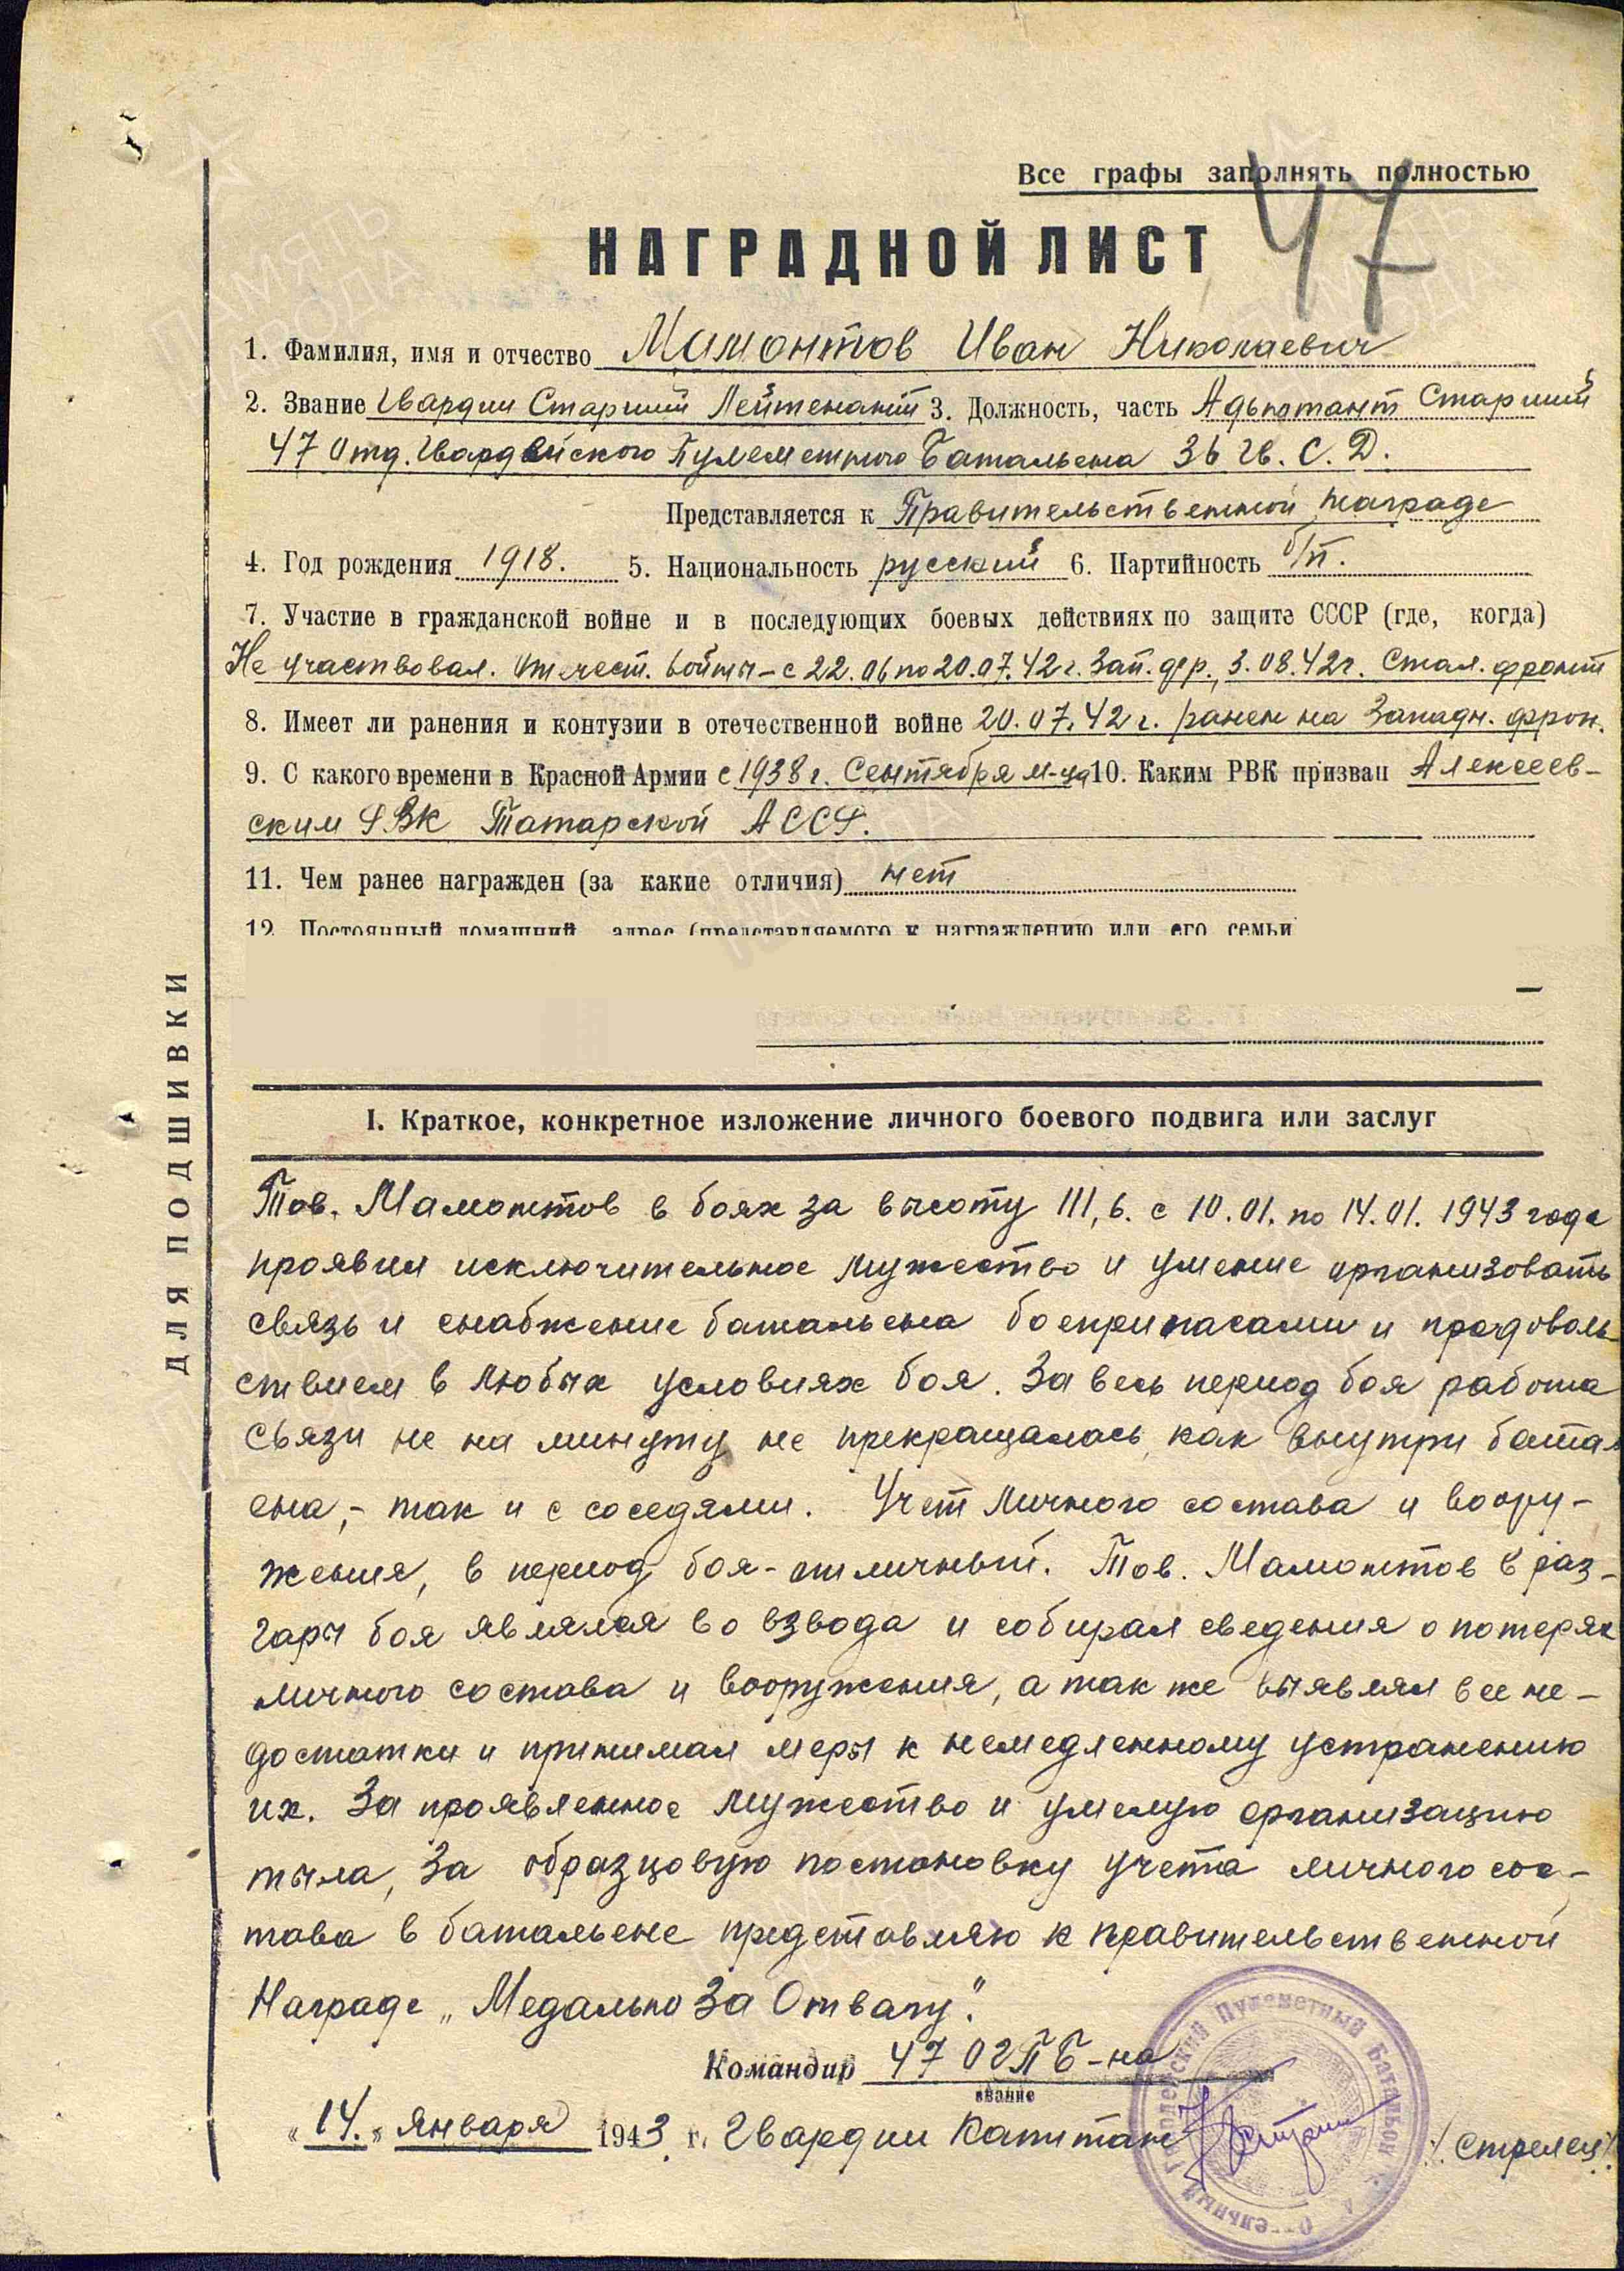 Все графы заполнять полностью
47
НАГРАДНОЙ ЛИСТ
1. Фамилия, имя и отчество Мамонтов Иван Николаевич
2. Звание Гвардии Старший Лейтенант 3. Должность, часть Адьютант Старший
47 Отд. Гвардейского Пулеметного Батальена 36 Гв. С. Д.
Представляется к Правительственной награде
4. Год рождения 1918. 5. Национальность русский 6. Партийность б/п.
7. Участие в гражданской войне и в последующих боевых действиях по защите СССР (где, когда)
Не участвовал. Отечест. войны – с 22.06 по 20.07.42г. Зап. фр., 3.08.42г. Стал. фронт
8. Имеет ли ранения и контузии в отечественной войне 20.07.42 г. ранен на Западн. фрон.
9. С какого времени в Красной Армии с 1938 г. Сентября м-ца 10. Каким РВК призван Алексеев-
ским РВК Татарской АССР.
11. Чем ранее награжден (за какие отличия) нет
12. Постоянный домашний адрес (представляемого к награждению или его семьи
ДЛЯ ПОДШИВКИ
I. Краткое, конкретное изложение личного боевого подвига или заслуг
Тов. Мамонтов в боях за высоту 111,6. с 10.01. по 14.01. 1943 года
проявил исключительное мужество и умение организовать
связь и снабжение батальена боеприпасами и продоволь-
ствием в любых условиях боя. За весь период боя работа
связи не на минуту не прекращалась, как внутри батал
ена, - так и с соседями. Учет личного состава и воору-
жения, в период боя - отличный. Тов. Мамонтов в раз-
гары боя являлся во взвода и собирал сведения о потерях
личного состава и вооружения, а так же выявлял все не-
достатки и принимал меры к немедленному устранению
их. За проявленное мужество и умелую организацию
тыла, за образцовую постановку учета личного сос-
тава в батальене представляю к правительственной
Награде „Медалью За Отвагу".
Командир 47 ОГПБ-на
звание
„14." января 1943 г. Гвардии Капитан /Стрелец/.
Отдельный Гвардейский Пулеметный Батальон
ПАМЯТЬ НАРОДА